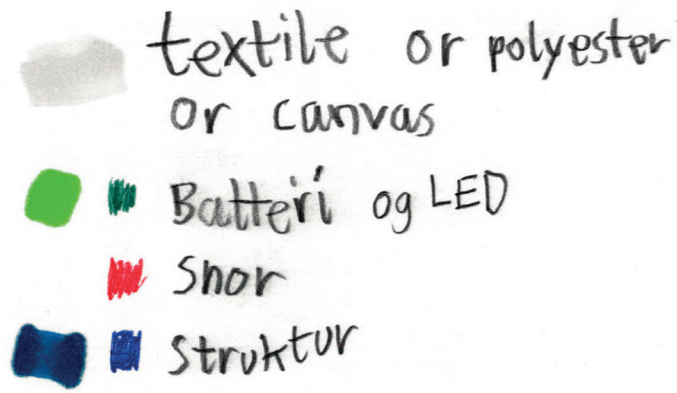 textile or polyester
or canvas
Batteri og LED
Snor
Struktur